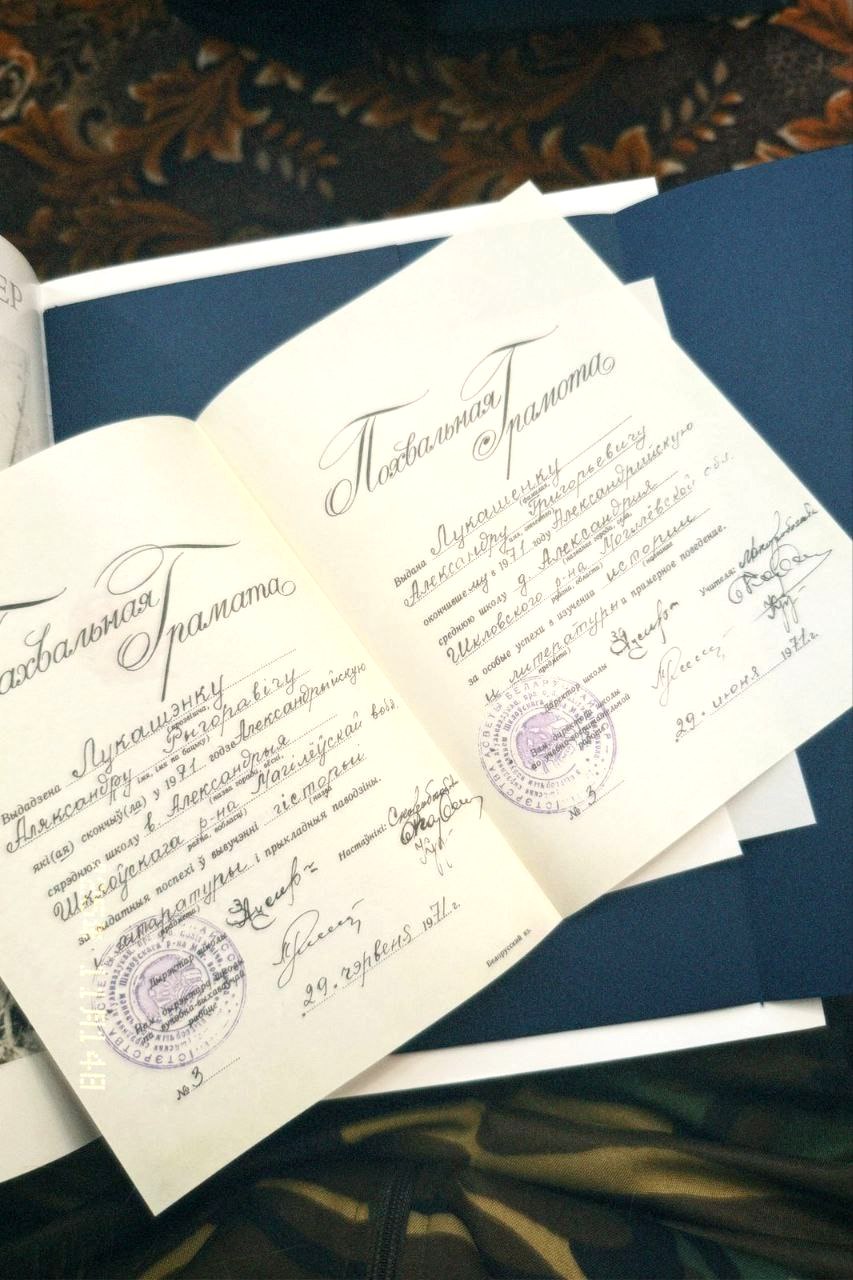 ЕР
Пахвальная Грамата
Выдадзена Лукашэнку
(прозвішча,
Аляксандру Рыгоравічу
імя, імя па бацьку)
які(ая) скончыў(ла) у 1971 годзе Александрыйскую
сярэднюю школу в. Александрыя
(назва горада, вёскі,
Шклоўскага р-на Магілёўскай вобл.
раёна, вобласці)
за выдатныя поспехі ў вывучэнні гісторыі
(назва
і літаратуры і прыкладныя паводзіны.
прадмета)
Дырэктар школы
Настаўнікі:
Нам. дырэктара школы
па вучэбна-выхаваўчай
рабоце
29. чэрвеня 1971 г.
№ 3
Белорусский яз.
Похвальная Грамота
Выдана Лукашенку
(фамилия,
Александру Григорьевичу
имя, отчество)
окончившему в 1971 году Александрийскую
среднюю школу д. Александрия
(название города, села,
Шкловского р-на Могилёвской обл.
района, области)
за особые успехи в изучении истории
(название
и литературы и примерное поведение.
предмета)
Директор школы
Учителя:
Зам. директора школы
по учебно-воспитательной
работе
29. июня 1971 г.
№ 3